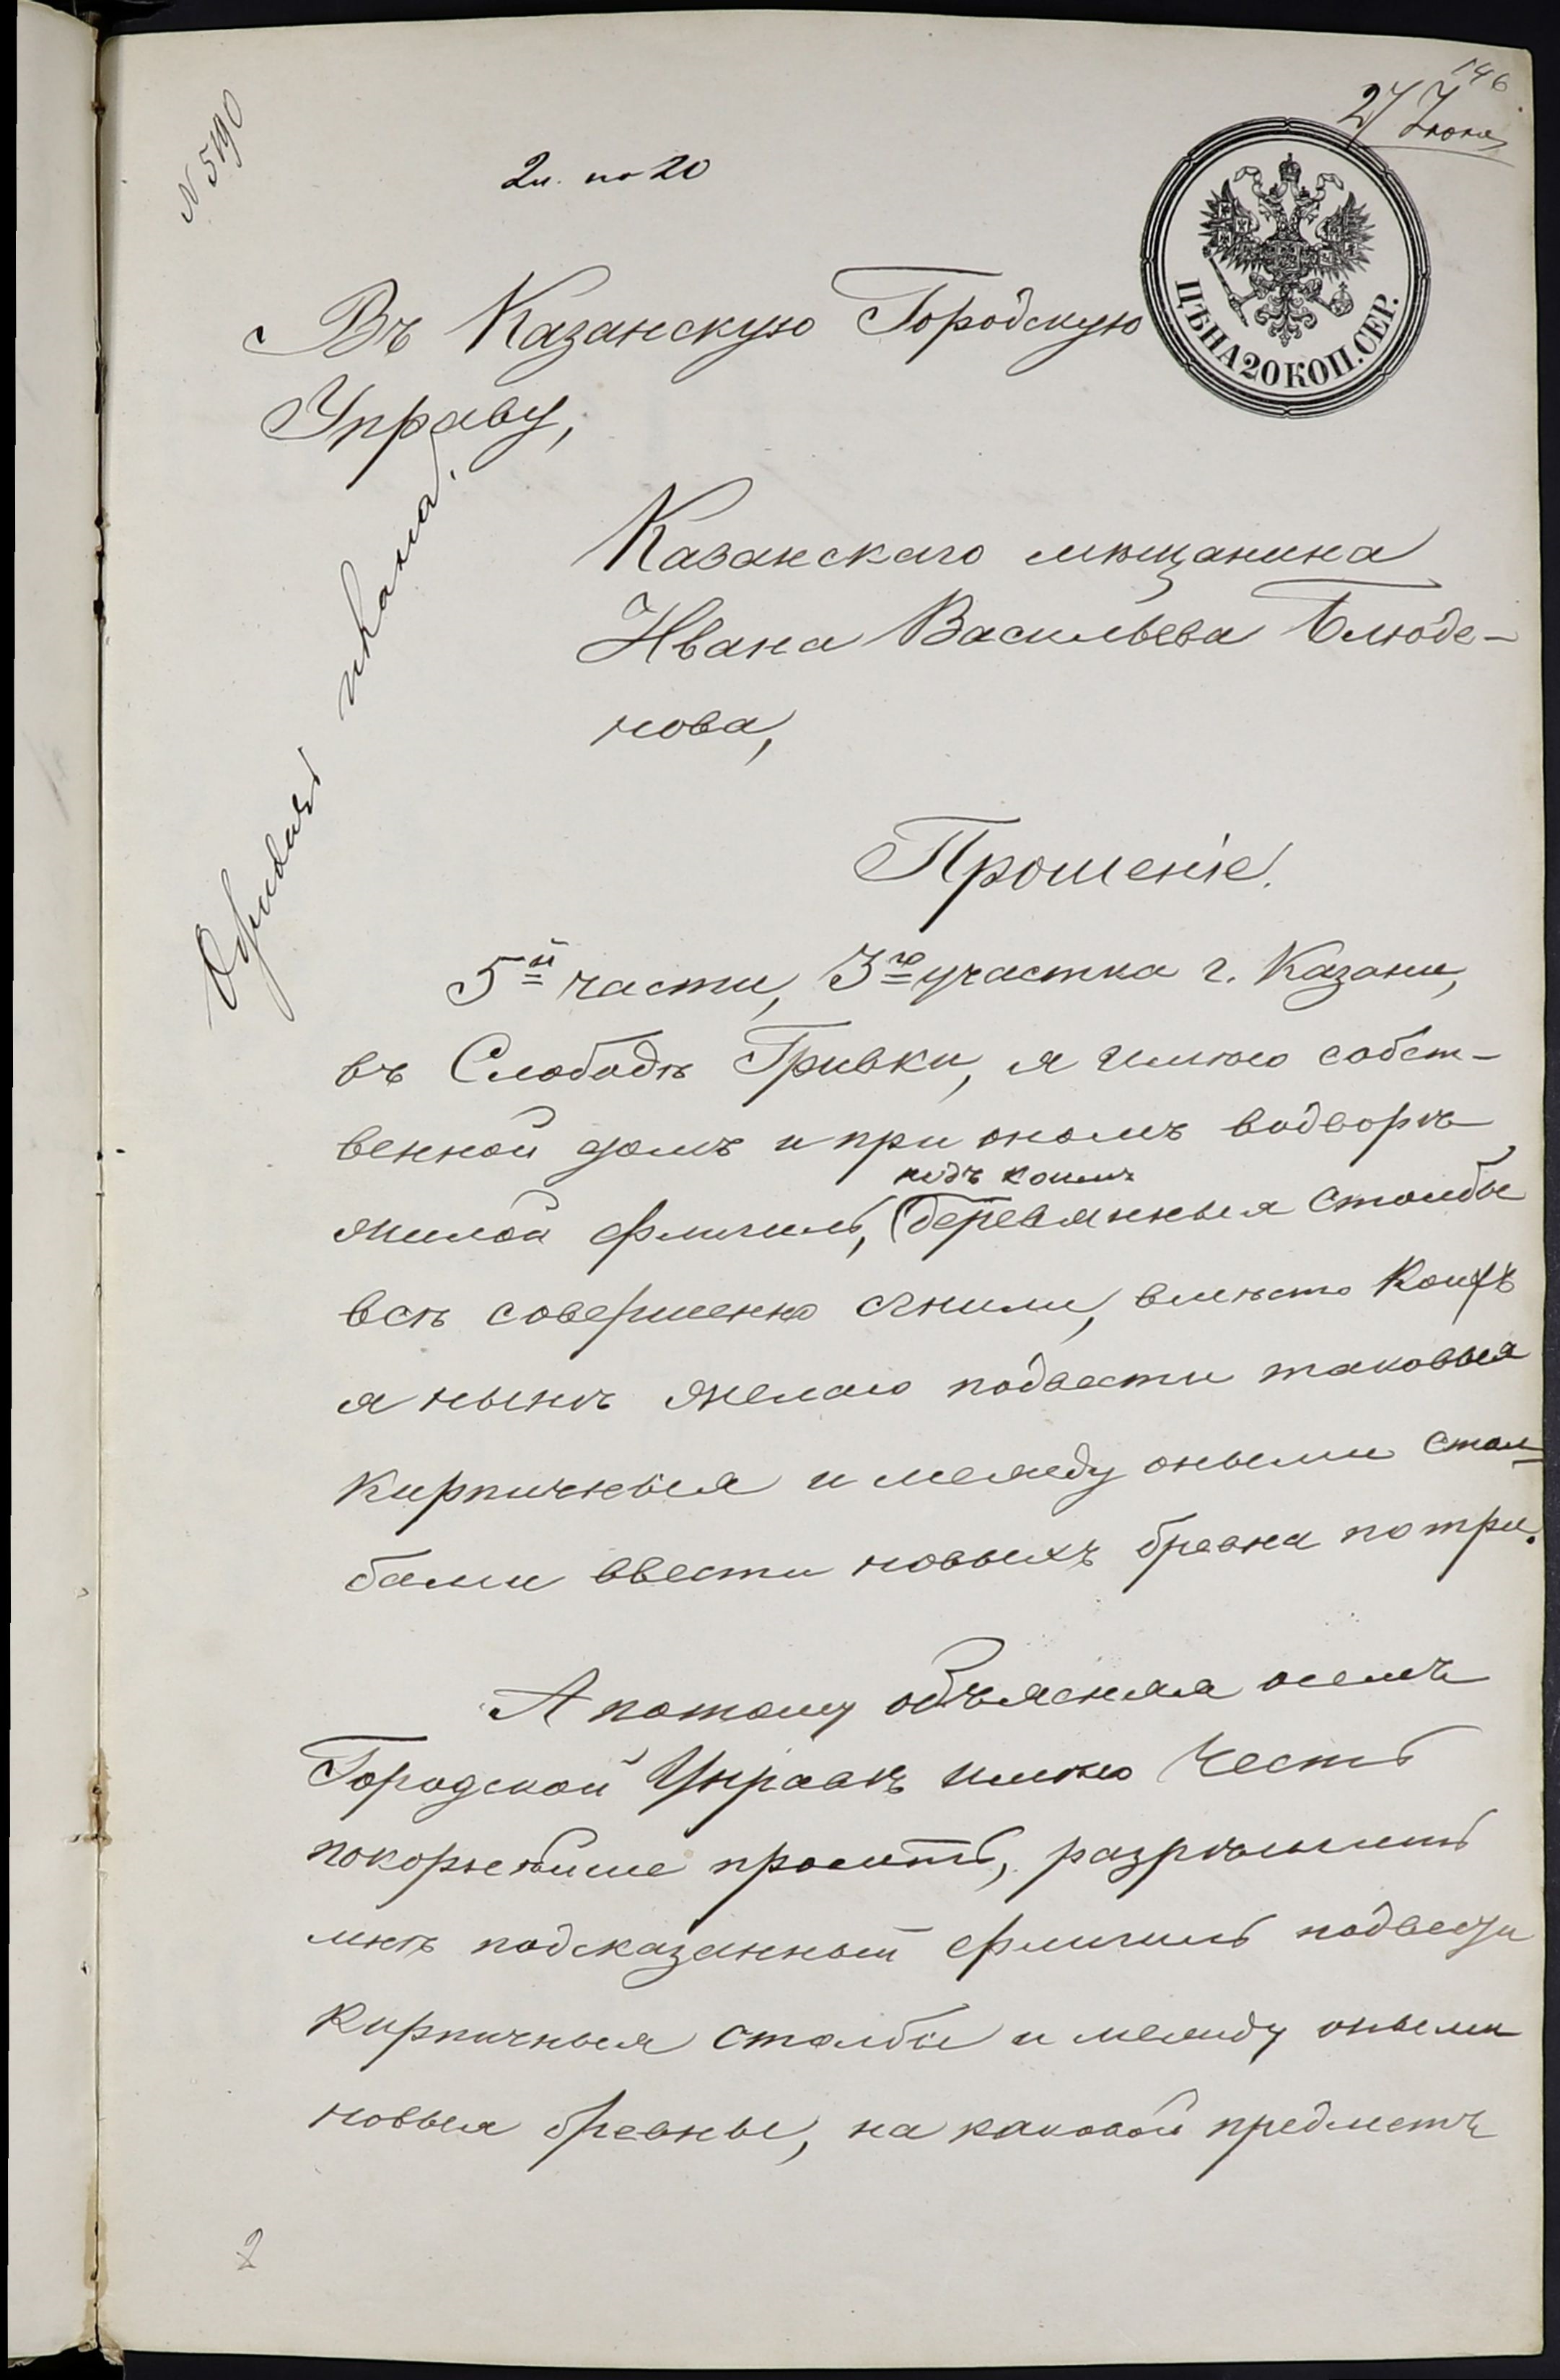 146
27 Июня
N 5190
2 л. по 20
ЦѢНА 20 КОП. СЕР.
Въ Казанскую Городскую
Управу,
Казанскаго мѣщанина
Ивана Васильева Блюде-
нова,
Прошеніе.
5й части, 3го участка г. Казани,
въ Слободѣ Гривки, я имѣю собст-
венной домъ и при ономъ водворѣ
подъ коимъ
жилой флигиль, деревянныя столбы
всѣ совершенно сгнили, вмѣсто коихъ
я нынѣ желаю подвести таковыя
кирпичныя и между оными стол-
бами ввести новыхъ бревна по три.
А потому объясняя осемъ
Городской Управѣ имѣю честь
покорнѣйше просить, разрѣшить
мнѣ подсказанный флигиль подвести
кирпичныя столбы и между оными
новыя бревны, на каковой предметъ
2